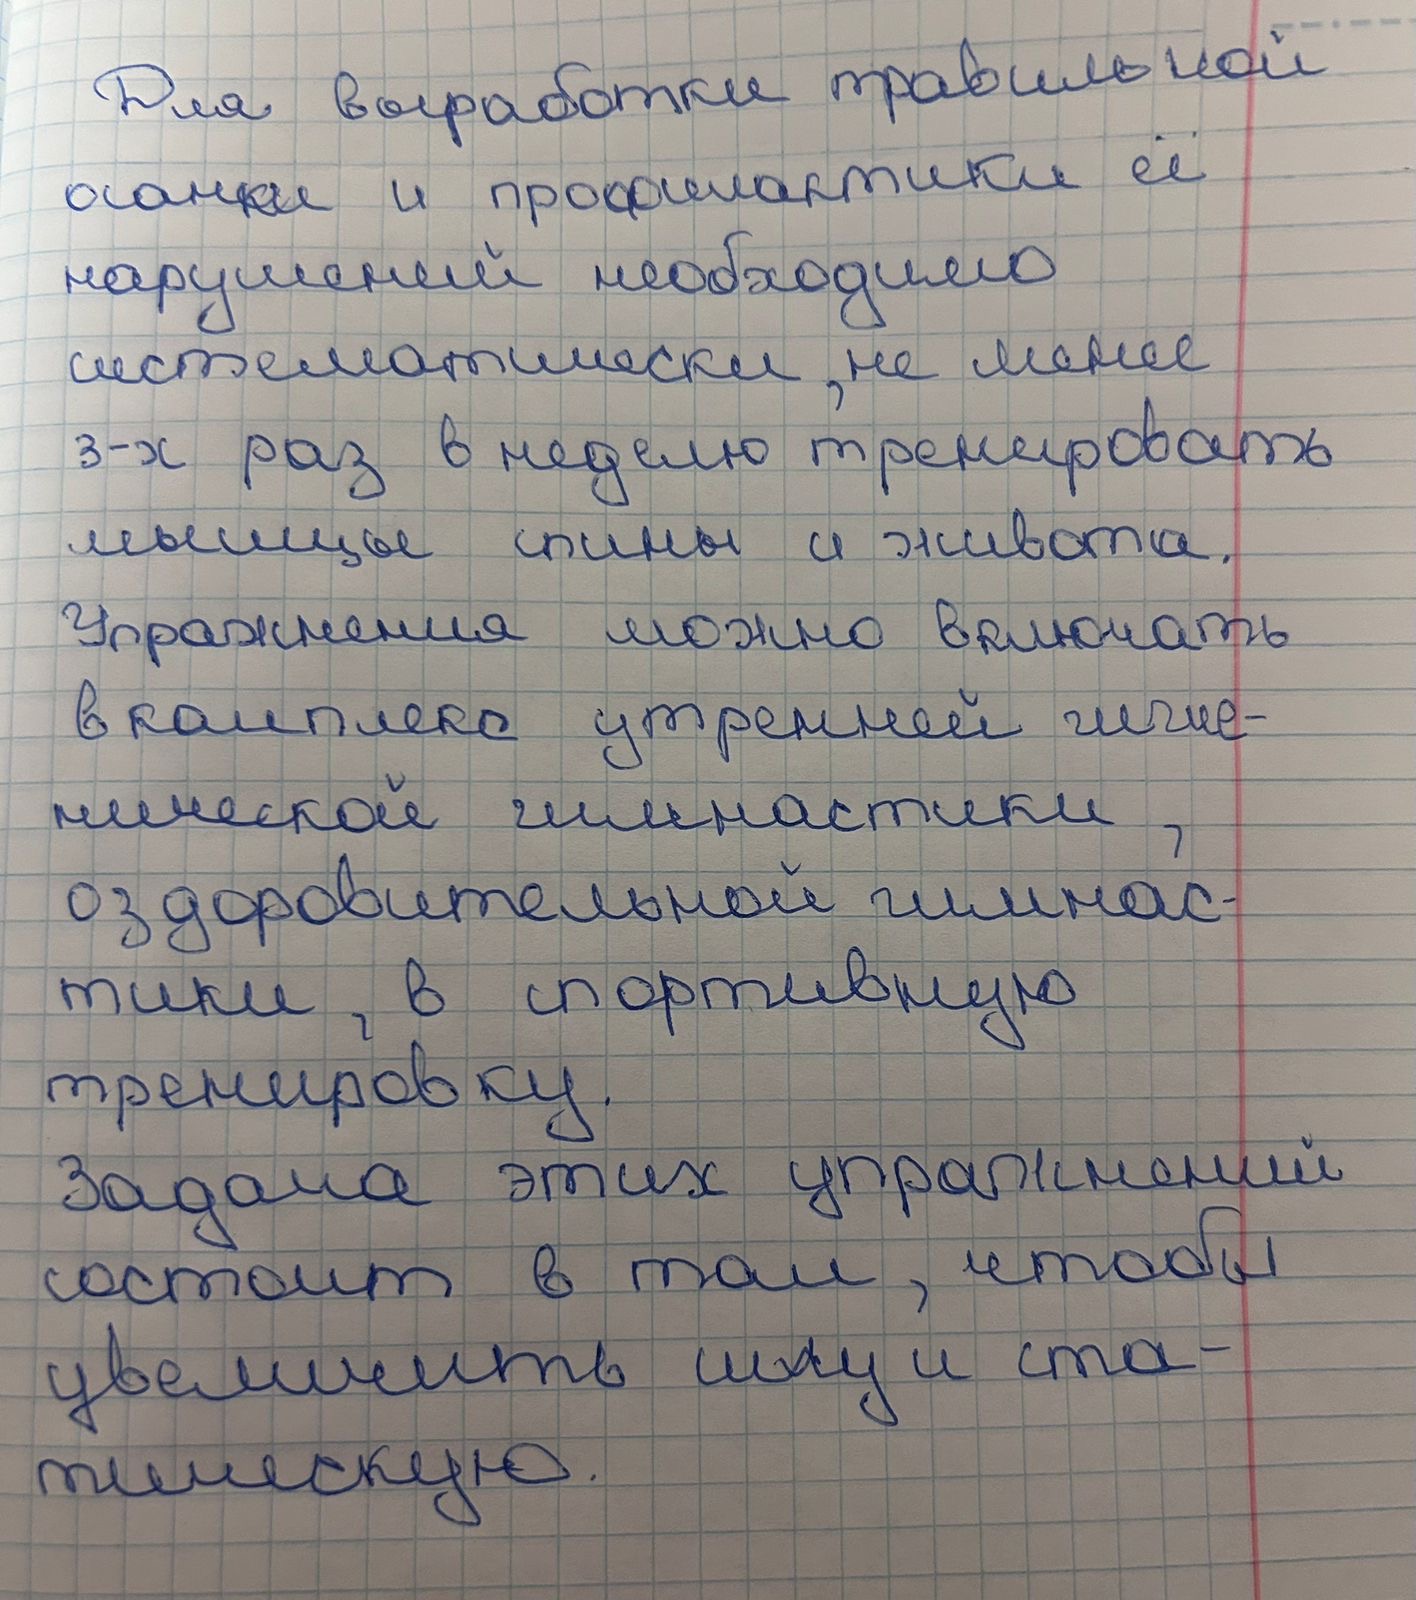 Для выработки правильной
осанки и профилактики её
нарушений необходимо
систематически, не менее
3-х раз в неделю тренировать
мышцы спины и живота.
Упражнения можно включать
в комплекс утренней гигие-
нической гимнастики,
оздоровительной гимнас-
тики, в спортивную
тренировку.
Задача этих упражнений
состоит в том, чтобы
увеличить силу и ста-
тическую.